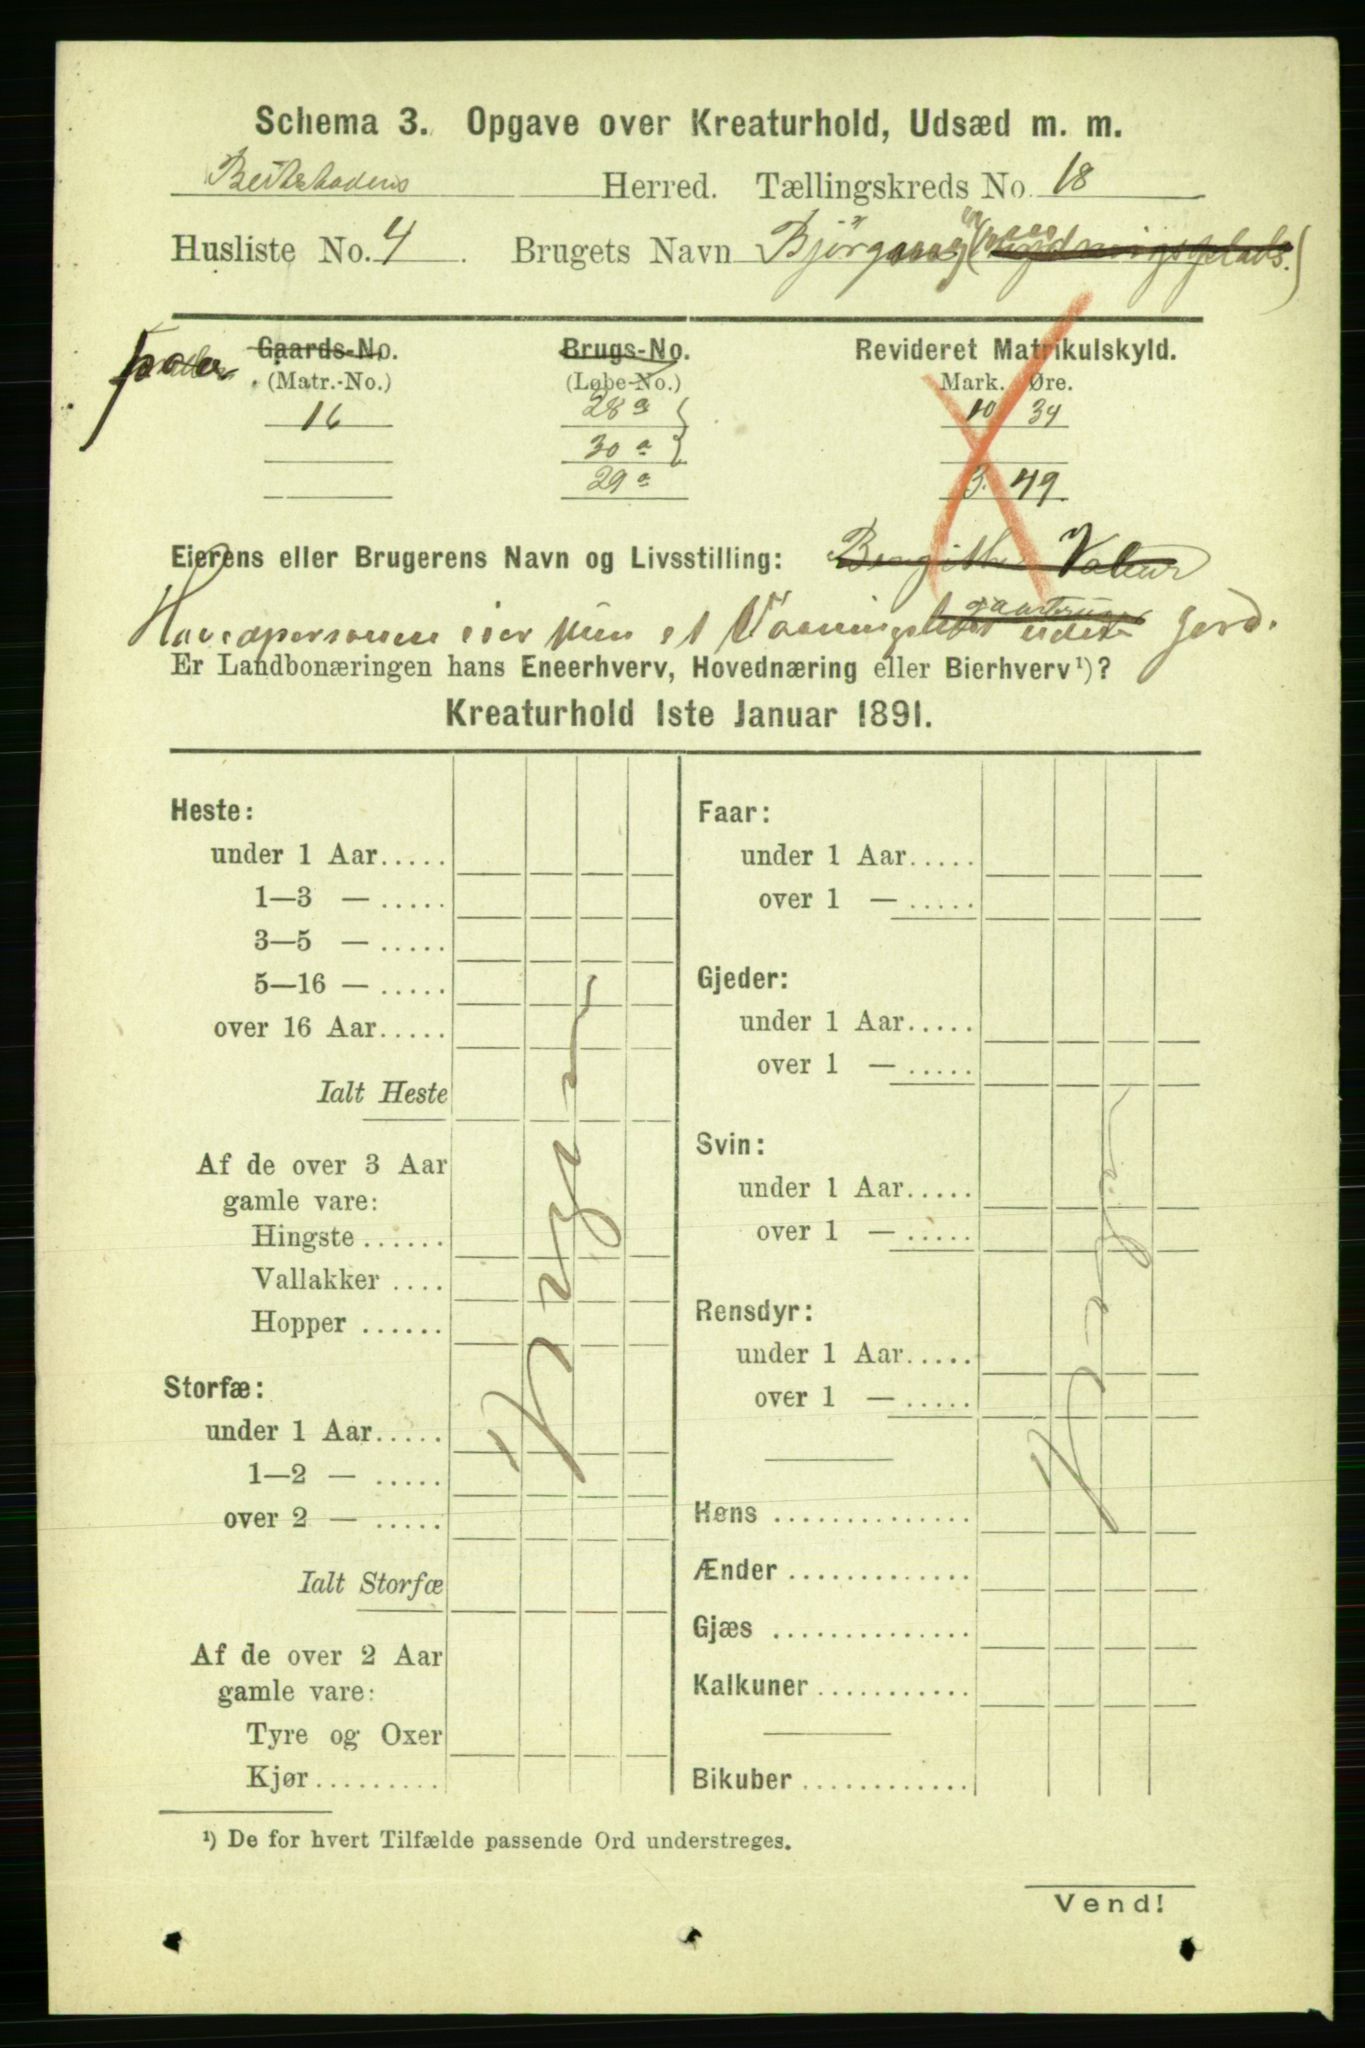 Schema 3. Opgave over Kreaturhold, Udsæd m. m.
Beitstadens Herred. Tællingskreds No. 18
Husliste No. 4. Brugets Navn Björgan
Gaards-No. Brugs-No. Revideret Matrikulskyld.
(Matr.-No.) (Løbe-No.) Mark. Øre.
16 28 a } 10 34
30 a }
29 a 3. 49
Eierens eller Brugerens Navn og Livsstilling:
Hovedpersonen eier kun et Vaaningshus uden Jord.
Er Landbonæringen hans Eneerhverv, Hovednæring eller Bierhverv¹)?
Kreaturhold 1ste Januar 1891.
Heste:
under 1 Aar.....
1—3 — .....
3—5 — .....
5—16 — .....
over 16 Aar.....
Ialt Heste
Af de over 3 Aar
gamle vare:
Hingste ......
Vallakker ....
Hopper ......
Storfæ:
under 1 Aar.....
1—2 — .....
over 2 — .....
Ialt Storfæ
Af de over 2 Aar
gamle vare:
Tyre og Oxer
Kjør.........
Ingen
Faar:
under 1 Aar.....
over 1 — .....
Gjeder:
under 1 Aar.....
over 1 — .....
Svin:
under 1 Aar.....
over 1 — .....
Rensdyr:
under 1 Aar.....
over 1 — .....
Høns ..............
Ænder .............
Gjæs ..............
Kalkuner ...........
Bikuber ............
Ingen
¹) De for hvert Tilfælde passende Ord understreges.
Vend!